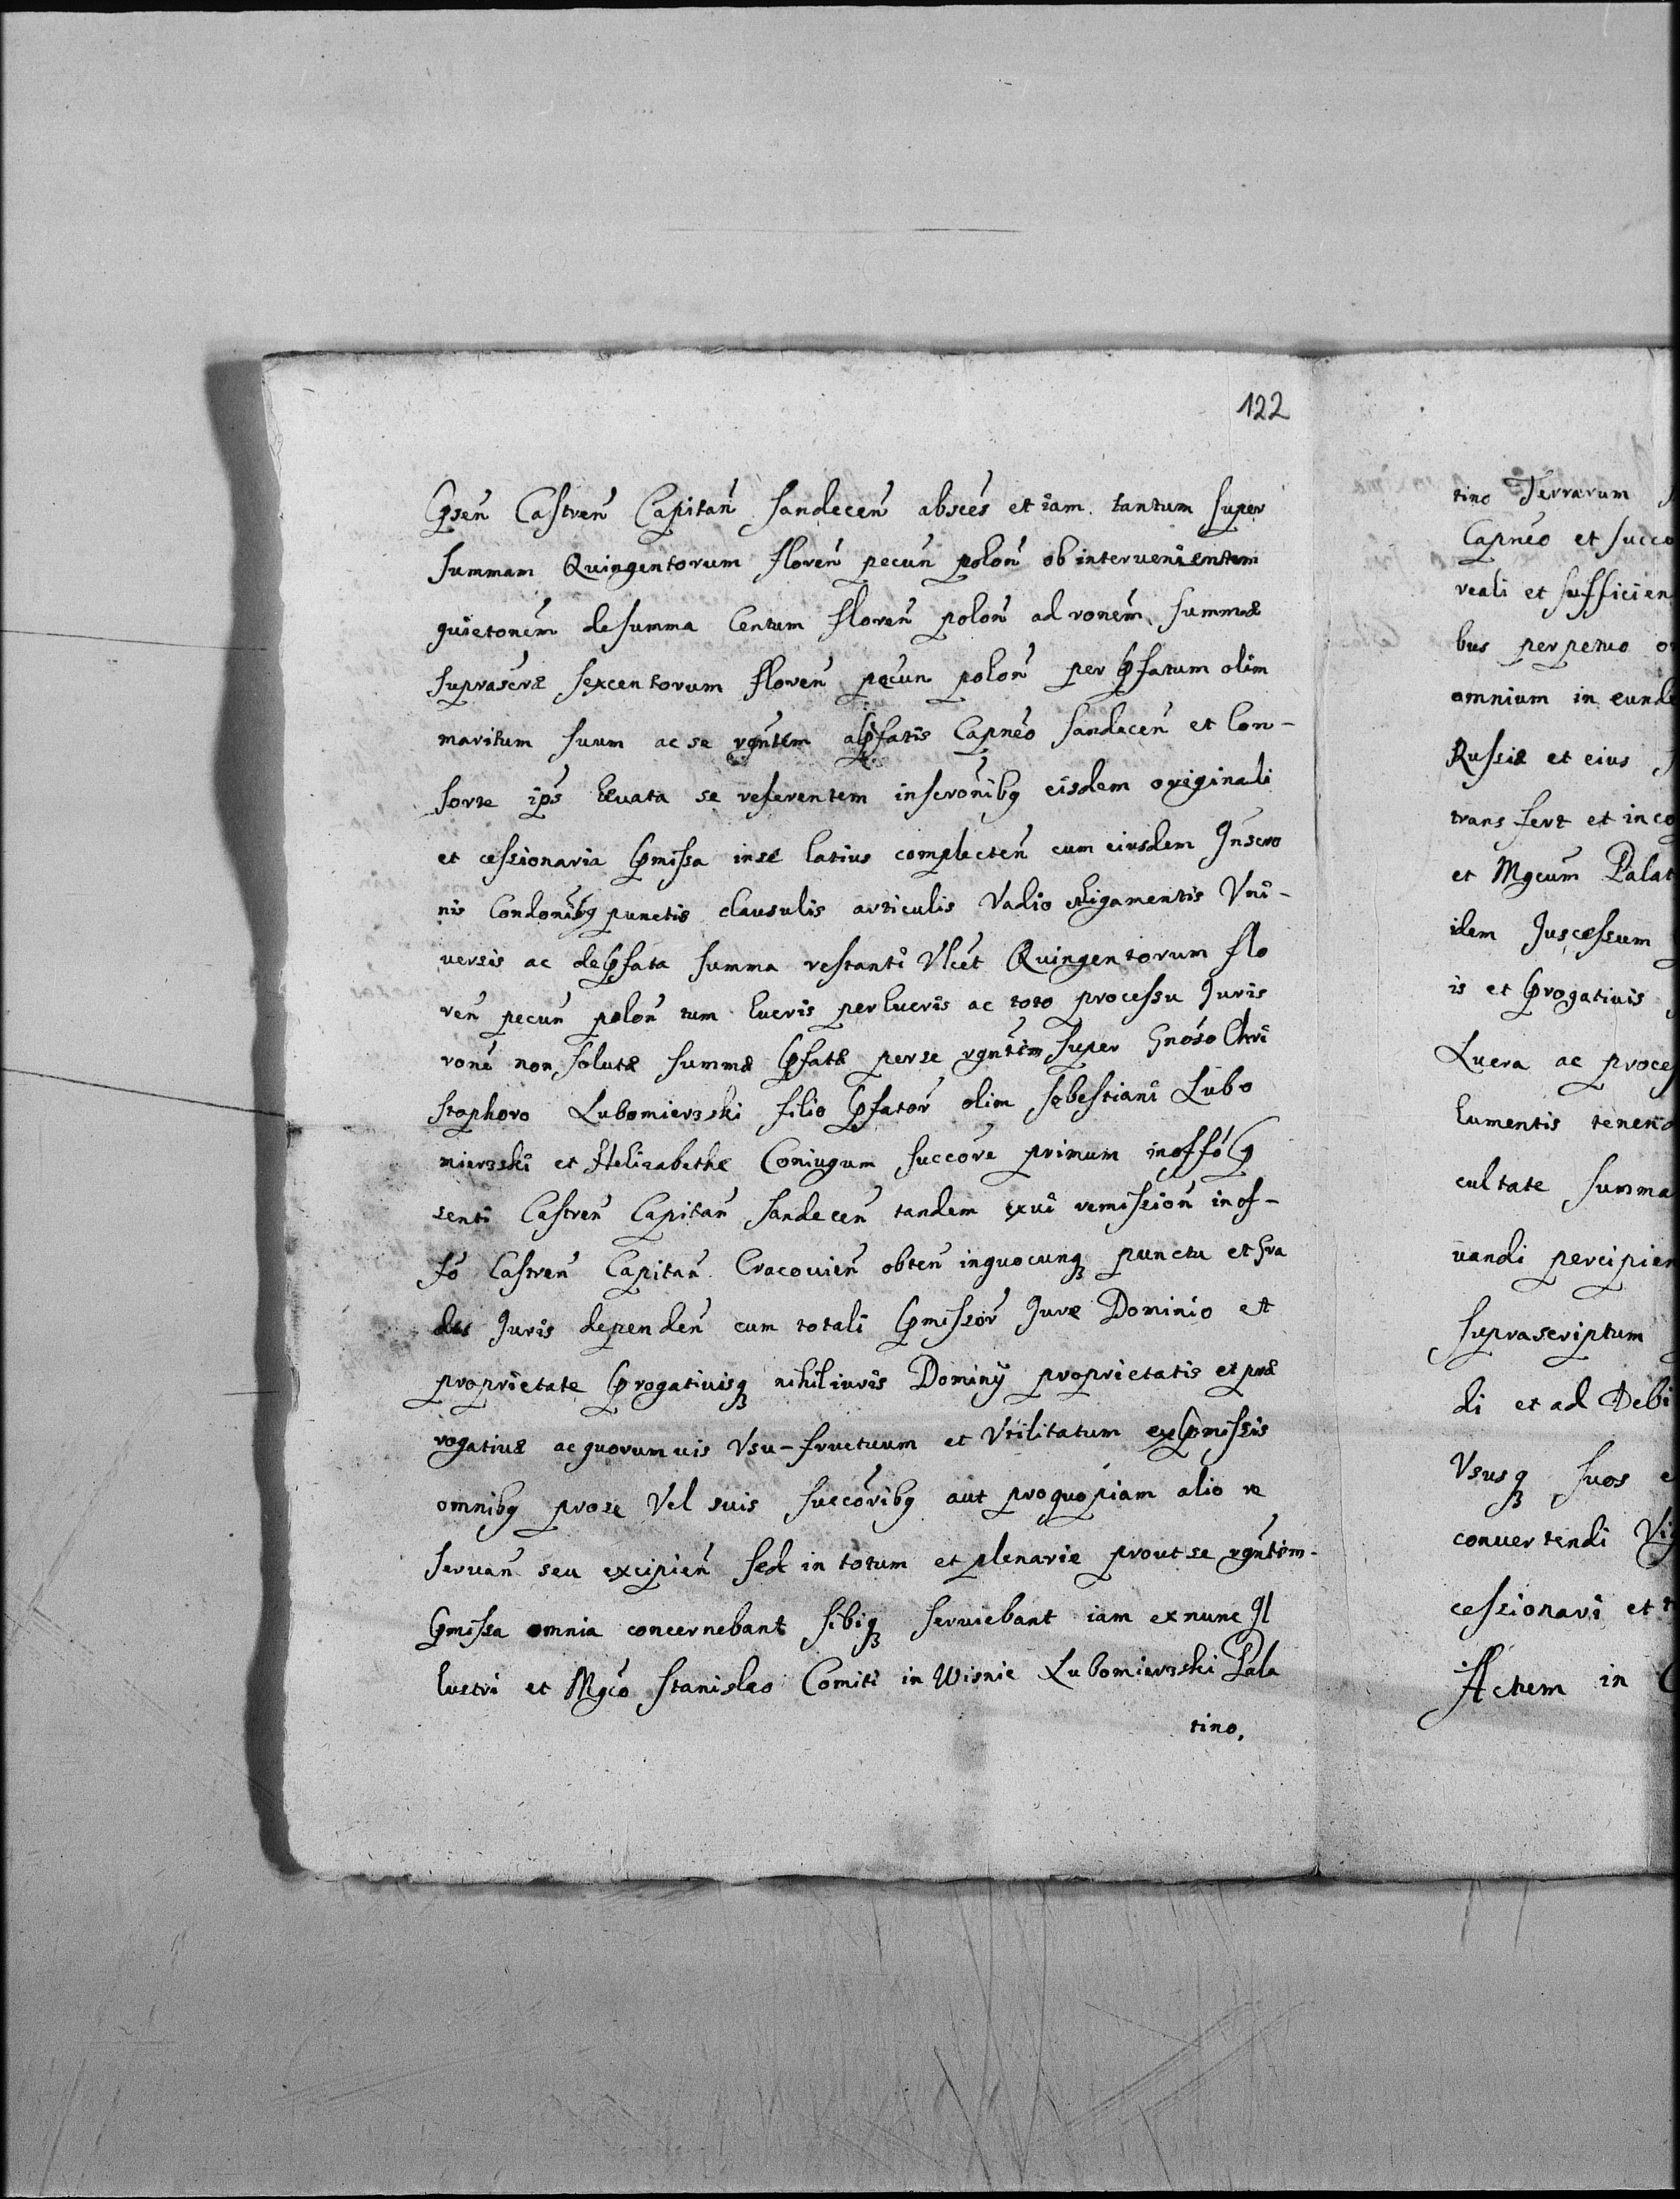 122
Pnsen̄ Castren̄ Capitan̄ Sandecen̄ absces et iam tantum super
summam Quingentorum floren̄ pecun̄ polon̄ ob interuenientem
quietonem̄ de summa Centum floren̄ polon̄ ad ronem̄ summæ
suprascræ sexcentorum floren̄ pecun polon̄ per pfatum olim
maritum suum ac se rgn̄tem a pfatis Capneo Sandecen̄ et Con-
sorte ips leuata se referentem inscronibq eisdem originali
et cessionaria pmissa in se latius complecten̄ cum eiusdem Inscro
nis Condonibq punctis clausulis articulis Vadio ligamentis Vni-
uersis ac de pfata summa restanti Vlcet Quingentorum flo
ren̄ pecun̄ polon̄ tum lucris perlucris ac toto processu Juris
rone non solutæ summæ pfatæ per se rgntem super Gnoso Chri
stophoro Lubomierski filio pfator̄ olim Sebestiani Lubo
mierzski et Helizabethæ Coniugum succore primum in offo p
senti Castren̄ Capitan̄ Sandecen̄ tandem ex vi remission̄ in of-
fo Castren̄ Capitan̄ Cracouien̄ obten̄ in quocunqꝫ punctu et Gra
du Juris dependen̄ cum totali pmissor̄ Jure Dominio et
proprietate progatiuisqꝫ nihil iuris Dominÿ proprietatis et præ
rogatiuæ ac quorumuis Vsu-fructuum et Vtilitatum ex pmissis
omnibq pro se Vel suis succoribq aut pro quopiam alio re
seruan̄ seu excipien̄ sed in totum et plenarie prout se rgn̄tem
pmissa omnia concernebant sibiqꝫ seruiebant iam ex nunc Il
lustri et Mgco Stanislao Comiti in Wisnic Lubomierzski Pala
tino.
tino Terrarum
Capneo et succo
reali et sufficien
bus perpetuo
omnium in eunde
Russiæ et eius
transfert et in co
et Mgcum Palat
idem Juscessum
is et progatiuis
Lucra ac proces
lumentis tenen
cultate summa
uandi percipien
suprascriptum
di et ad Debi
Vsusqꝫ suos e
conuertendi
cessionari et
Actum in